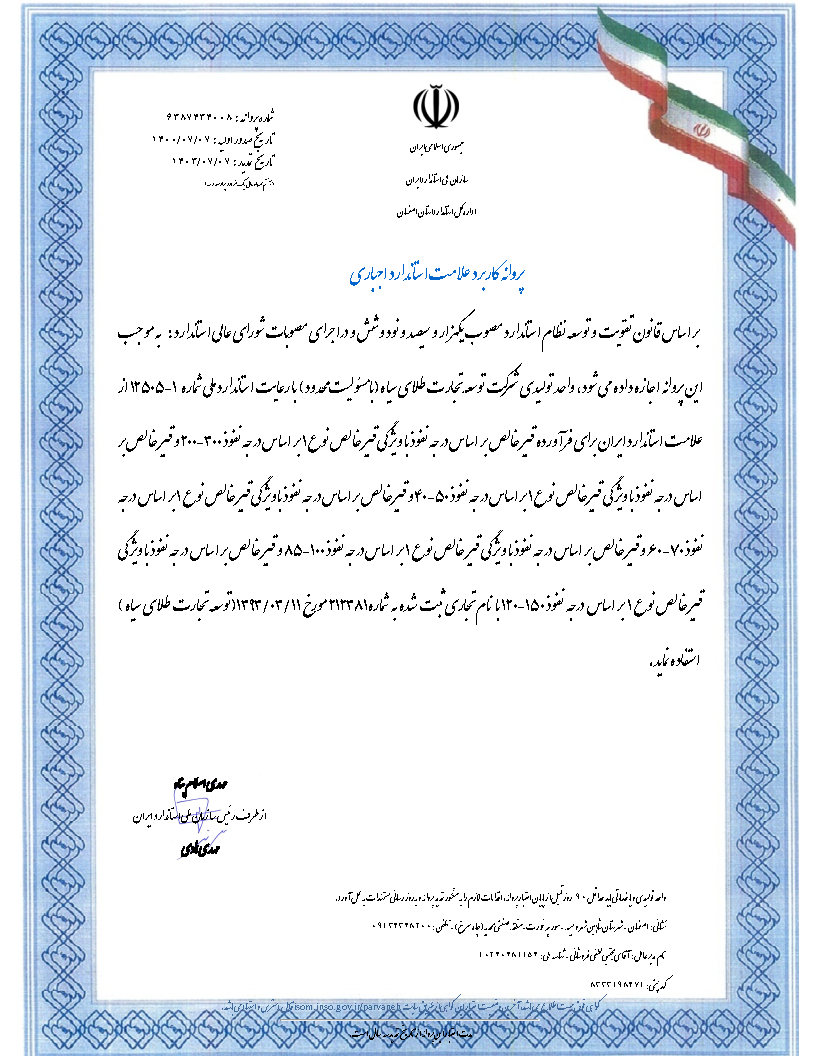 شماره پروانه : ۶۳۸۷۴۳۴۰۰۸
تاریخ صدور اولیه : ۱۴۰۰/۰۷/۰۷
تاریخ تمدید : ۱۴۰۳/۰۷/۰۷
جمهوری اسلامی ایران
سازمان ملی استاندارد ایران
اداره کل استاندارد استان اصفهان
پروانه کاربرد علامت استاندارد اجباری
بر اساس قانون تقویت و توسعه نظام استاندارد مصوب یکهزار و سیصد و نود و شش و در اجرای مصوبات شورای عالی استاندارد : به موجب
این پروانه اجازه داده می شود، واحد تولیدی شرکت توسعه تجارت طلای سیاه (با مسئولیت محدود) با رعایت استاندارد ملی شماره ۱-۱۲۵۰۵ از
علامت استاندارد ایران برای فرآورده قیر خالص بر اساس درجه نفوذ با ویژگی قیر خالص نوع ۱ بر اساس درجه نفوذ ۳۰۰-۲۰۰ و قیر خالص بر
اساس درجه نفوذ با ویژگی قیر خالص نوع ۱ بر اساس درجه نفوذ ۵۰-۴۰ و قیر خالص بر اساس درجه نفوذ با ویژگی قیر خالص نوع ۱ بر اساس درجه
نفوذ ۷۰-۶۰ و قیر خالص بر اساس درجه نفوذ با ویژگی قیر خالص نوع ۱ بر اساس درجه نفوذ ۱۰۰-۸۵ و قیر خالص بر اساس درجه نفوذ با ویژگی
قیر خالص نوع ۱ بر اساس درجه نفوذ ۱۵۰-۱۲۰ با نام تجاری ثبت شده به شماره ۲۱۲۳۸۱ مورخ ۱۳۹۳/۰۳/۱۱ (توسعه تجارت طلای سیاه )
استفاده نماید .
مهدی اسلام پناه
از طرف رئیس سازمان ملی استاندارد ایران
مهدی
واحد تولیدی و یا خدماتی باید حداقل ۹۰ روز قبل از پایان اعتبار پروانه، اقدامات لازم را به منظور تمدید پروانه و به روز رسانی مستندات به عمل آورد.
نشانی: اصفهان - شهرستان شاهین شهر و میمه - مورچه خورت - منطقه صنعتی (چاه سرخ) - تلفن: ۰۹۱۳۲۳۴۸۲۰۰
نام مدیر عامل: آقای مجتبی - شناسه ملی: ۱۰۲۶۰۴۸۱۱۵۴
کد پستی: ۸۳۳۳۱۹۸۴۷۱
isom.inso.gov.ir/parvaneh
مدت اعتبار این پروانه از تاریخ تمدید سه سال است.